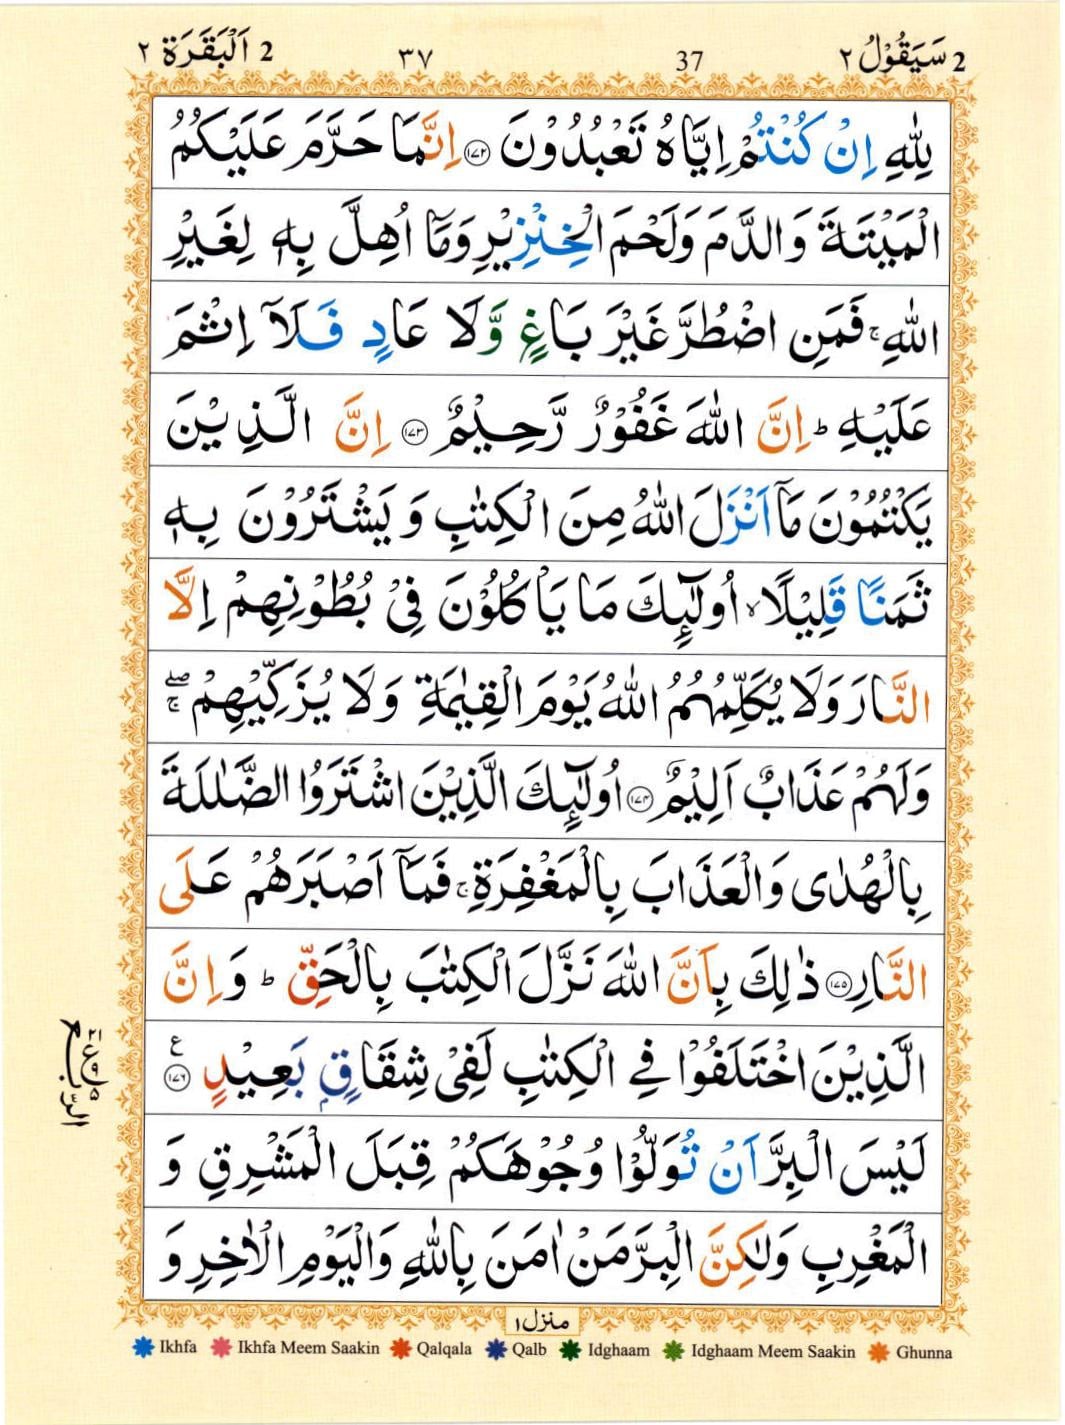 2 سَيَقُوْلُ ٢ 37 ٣٧ 2 اَلْبَقَرَة ٢
لِلّٰهِ اِنْ كُنْتُمْ اِيَّاهُ تَعْبُدُوْنَ ۝١٧٢ اِنَّمَا حَرَّمَ عَلَيْكُمُ
الْمَيْتَةَ وَالدَّمَ وَلَحْمَ الْخِنْزِيْرِ وَمَاۤ اُهِلَّ بِهٖ لِغَيْرِ
اللّٰهِ ۚ فَمَنِ اضْطُرَّ غَيْرَ بَاغٍ وَّلَا عَادٍ فَلَاۤ اِثْمَ
عَلَيْهِ ؕ اِنَّ اللّٰهَ غَفُوْرٌ رَّحِيْمٌ ۝١٧٣ اِنَّ الَّذِيْنَ
يَكْتُمُوْنَ مَاۤ اَنْزَلَ اللّٰهُ مِنَ الْكِتٰبِ وَ يَشْتَرُوْنَ بِهٖ
ثَمَنًا قَلِيْلًا ۙ اُولٰٓئِكَ مَا يَاْكُلُوْنَ فِيْ بُطُوْنِهِمْ اِلَّا
النَّارَ وَلَا يُكَلِّمُهُمُ اللّٰهُ يَوْمَ الْقِيٰمَةِ وَلَا يُزَكِّيْهِمْ ۖۚ
وَلَهُمْ عَذَابٌ اَلِيْمٌ ۝١٧٤ اُولٰٓئِكَ الَّذِيْنَ اشْتَرَوُا الضَّلٰلَةَ
بِالْهُدٰى وَالْعَذَابَ بِالْمَغْفِرَةِ ۚ فَمَاۤ اَصْبَرَهُمْ عَلَى
النَّارِ ۝١٧٥ ذٰلِكَ بِاَنَّ اللّٰهَ نَزَّلَ الْكِتٰبَ بِالْحَقِّ ؕ وَ اِنَّ
الَّذِيْنَ اخْتَلَفُوْا فِي الْكِتٰبِ لَفِيْ شِقَاقٍۭ بَعِيْدٍ ۝١٧٦ ع
لَيْسَ الْبِرَّ اَنْ تُوَلُّوْا وُجُوْهَكُمْ قِبَلَ الْمَشْرِقِ وَ
الْمَغْرِبِ وَلٰكِنَّ الْبِرَّ مَنْ اٰمَنَ بِاللّٰهِ وَالْيَوْمِ الْاٰخِرِ وَ
منزل ١
Ikhfa Ikhfa Meem Saakin Qalqala Qalb Idghaam Idghaam Meem Saakin Ghunna
الرّبع